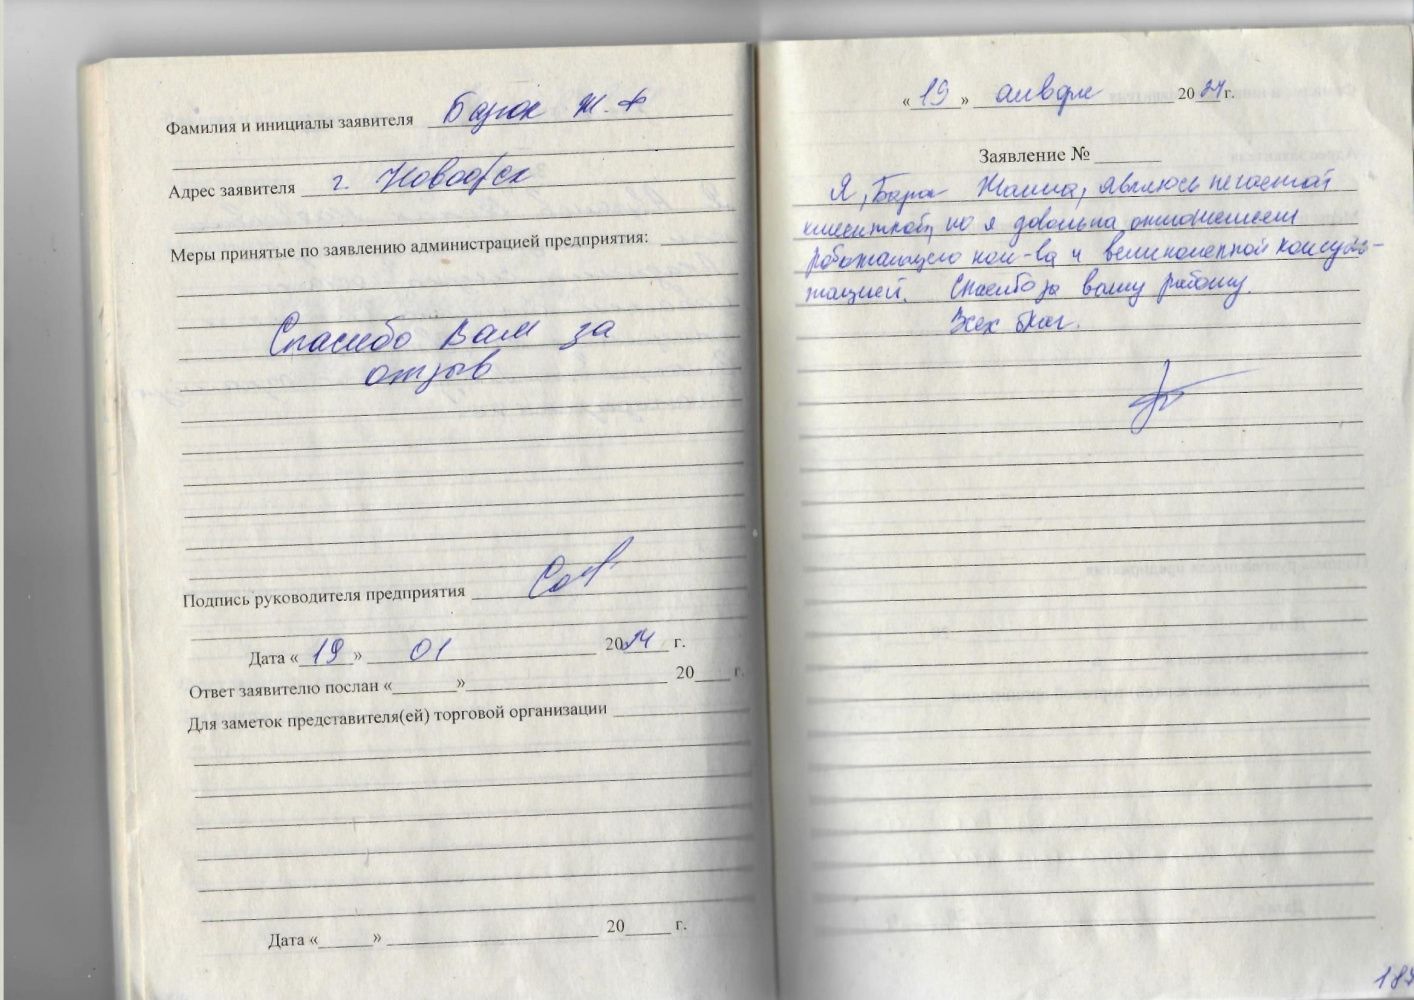 Фамилия и инициалы заявителя Ж.Ф
Адрес заявителя г. Новоорск
Меры принятые по заявлению администрацией предприятия:
Спасибо Вам за
отзыв
Подпись руководителя предприятия
Дата «19» 01 2024 г.
Ответ заявителю послан «» 20 г.
Для заметок представителя(ей) торговой организации
Дата «» 20 г.
«19» января 2024г.
Заявление №
Я, Жанна, являюсь не частой
клиенткой, но я довольна отношением
работающего кол-ва и великолепной консуль-
тацией. Спасибо за вашу работу.
Всех благ.